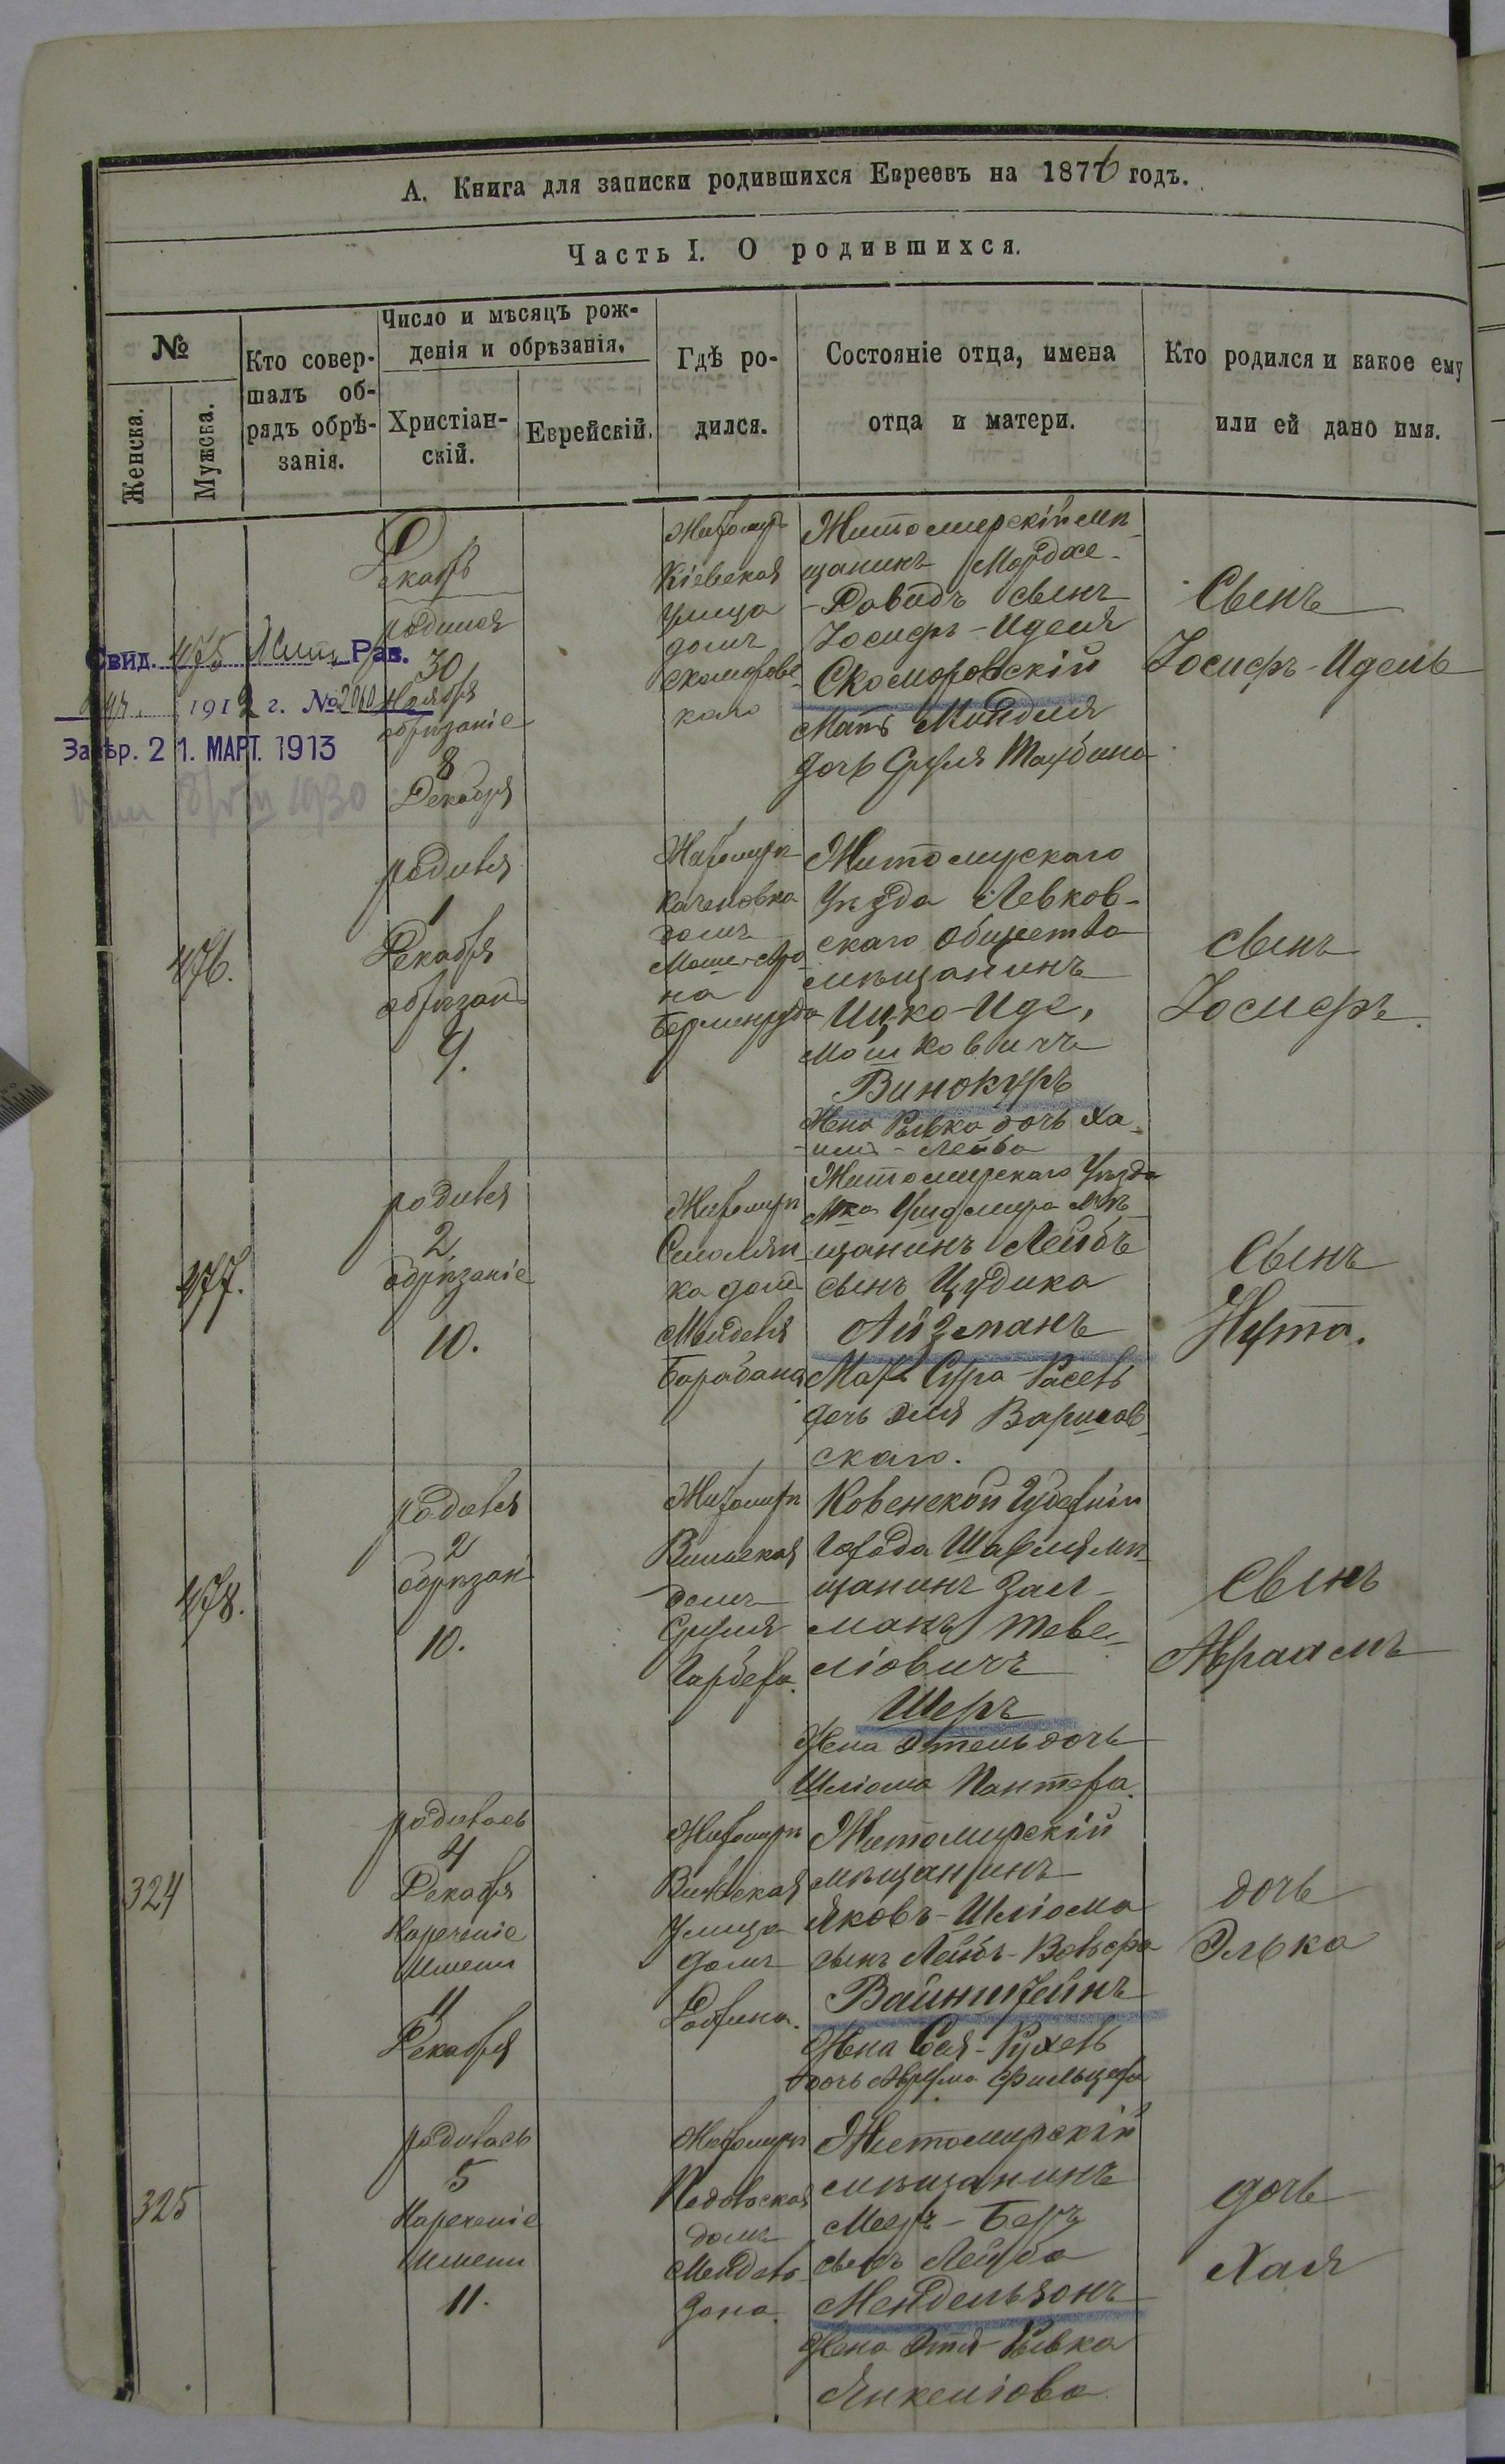 А. Книга для записки родившихся Евреевъ на 1876 годъ.
Часть I. О родившихся.
№
Женска.
Мужска.
Кто совер-
шалъ об-
рядъ обрѣ-
занія.
Число и мѣсяцъ рож-
денія и обрѣзанія.
Христіан-
скій.
Еврейскій.
Гдѣ ро-
дился.
Состояніе отца, имена
отца и матери.
Кто родился и какое ему
или ей дано имя.
Свид. 475 Рав.
1912 г. №
21. МАРТ. 1913
Декабрь
родился
30
Ноября
обрѣзаніе
8
Декабря
Житомиръ
Кіевская
улица
домъ
Скоморовс-
каго
Житомирскій мѣ-
щанинъ Мордхе-
-Давидъ сынъ
Іосифъ-Иделя
Скоморовскій
Мать Миндля
дочь Сруля Таубина
Сынъ
Іосифъ-Идель
476.
родился
1
Декабря
обрѣзан
9.
Житомиръ
домъ
Житомирскаго
Уѣзда Левков-
скаго Общества
мѣщанинъ
Ицко-Иде,
Мошковичъ
Винокуръ
Жена Рывка дочь Ха-
има-Лейба
сынъ
Іосифъ
477.
родился
2
обрѣзаніе
10.
Житомиръ
Смолян
ка дом
Барабана
Житомирскаго Уѣзда
Мка мѣ-
щанинъ Лейбъ
сынъ Цудика
Айзманъ
Мать Сура-Расель
дочь Эля
скаго.
Сынъ
Нута.
478.
родился
2
обрѣзан
10.
Житомиръ
Вильская
домъ
Сруля
Гарбера.
Ковенской Губерніи
Города Шавля мѣ-
щанинъ Зал-
манъ Теве-
ліовичъ
Шеръ
Жена Этель дочь
Шліома Кантора.
Сынъ
Авраамъ
324
родилась
4
Декабря
Нареченіе
Имени
11
Декабря
Житомиръ
Вильская
Улица
домъ
Житомирскій
мѣщанинъ
Яковъ-Шліома
сынъ Лейбъ-Вольфа
Вайнштейнъ
Жена Сося-Рухель
дочь Аврума Фильцера
дочь
Элька
325
родилась
5
Нареченіе
Имени
11.
Житомиръ
домъ
Мендель
зона.
Житомирскій
мѣщанинъ
Мееръ-Беръ
сынъ Лейба
Мендельзонъ
Жена Этя-Рывка
Янкеліова
дочь
Хая